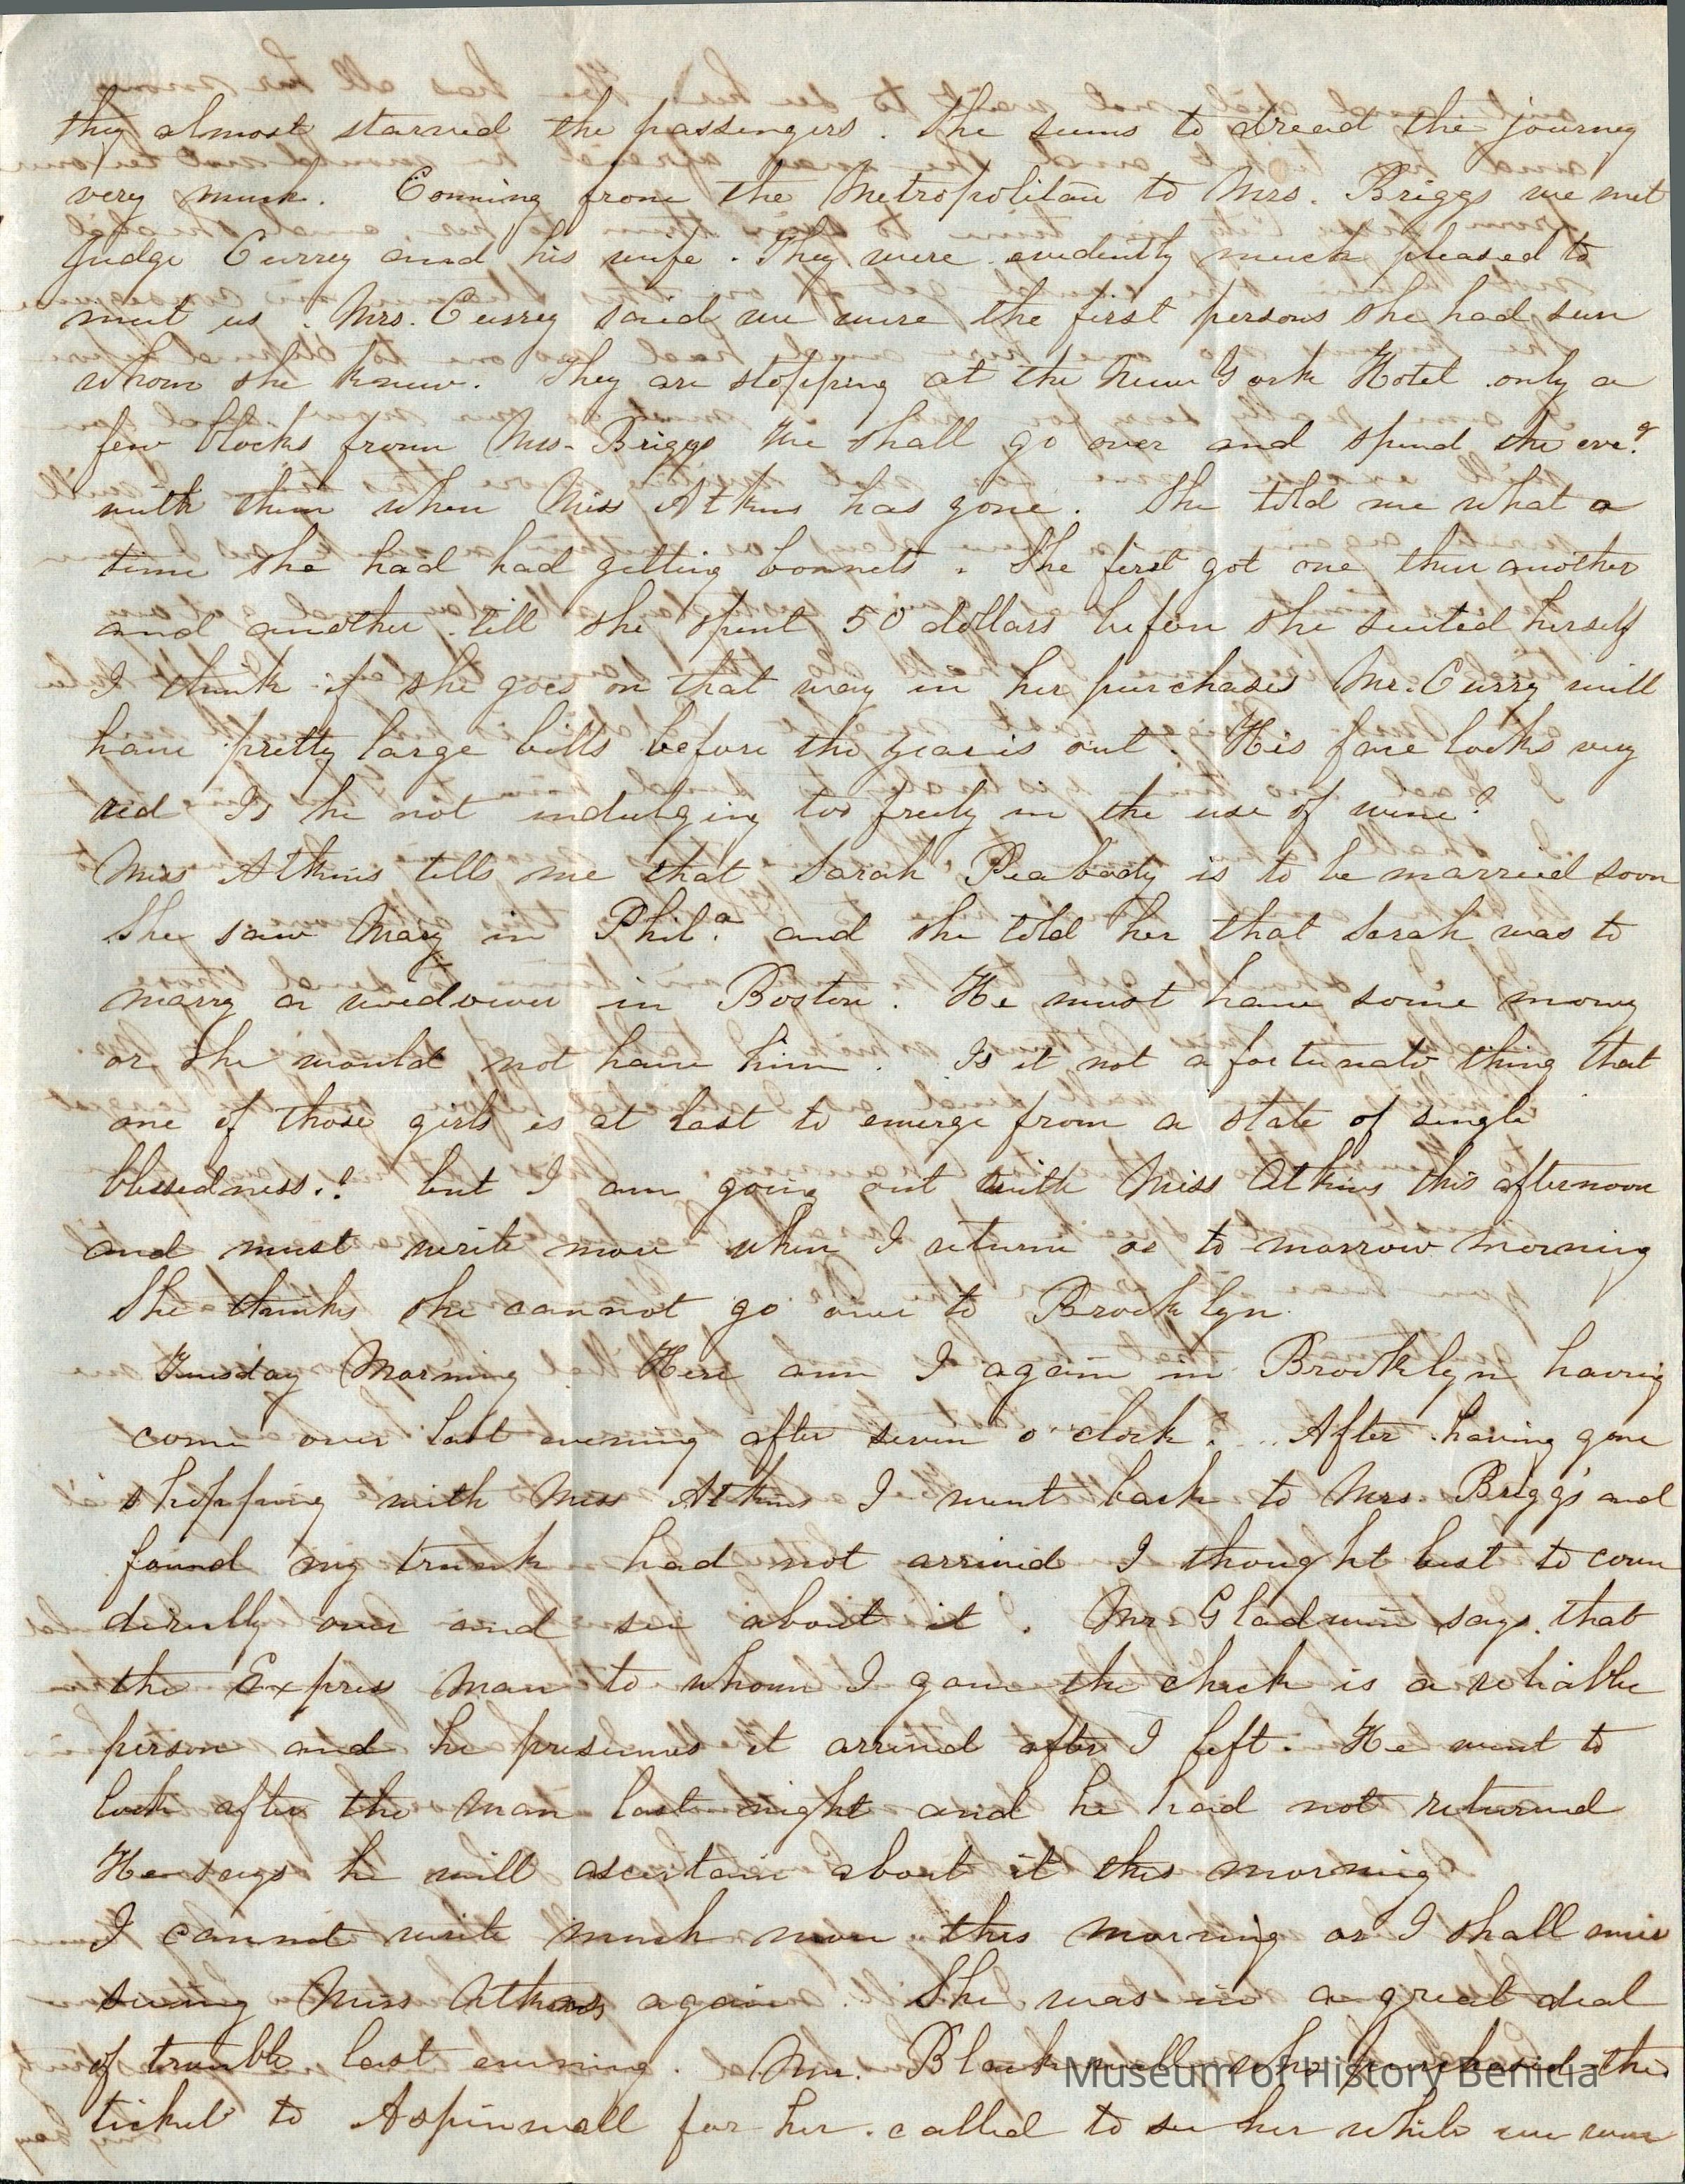 they almost starved the passengers. She seems to dread the journey
very much. Comming from the Metropolitan to Mrs. Briggs we met
Judge Currey and his wife. They were evidently much pleased to
meet us. Mrs. Currey said we were the first persons she had seen
whom she knew. They are stopping at the New York Hotel only a
few blocks from Mrs. Briggs We shall go over and spend the eve.g
with them when Miss Atkins has gone. She told me what a
time she had had getting bonnets. She first got one then another
and another till she spent 50 dollars before she suited herself
I think if she goes on that way in her purchases Mr. Curry will
have pretty large bills before the year is out. His face looks very
red Is he not indulging too freely in the use of wine?
Miss Atkins tells me that Sarah Peabody is to be married soon
She saw Mary in Phil.a and she told her that Sarah was to
marry a widower in Boston. He must have some money
or she would not have him. Is it not a fortunate thing that
one of those girls is at last to emerge from a state of single
blessedness.! but I am going out with Miss Atkins this afternoon
and must write more when I return or to-morrow morning
She thinks she cannot go over to Brooklyn.
Tuesday Morning Here am I again in Brooklyn having
come over last evening after seven o'clock. After having gone
shopping with Miss Atkins I went back to Mrs. Brigg's and
found my trunk had not arrived I thought best to come
directly over and see about it. Mr Gladwin says that
the Express man to whom I gave the check is a reliable
person and he presumes it arrived after I left. He went to
look after the man last night and he had not returned
He says he will ascertain about it this morning
I cannot write much more this morning or I shall miss
seeing Miss Atkins again. She was in a great deal
of trouble last evening. Mr. Blackwell who purchased the
ticket to Aspinwall for her called to see her while we were
Museum of History Benicia